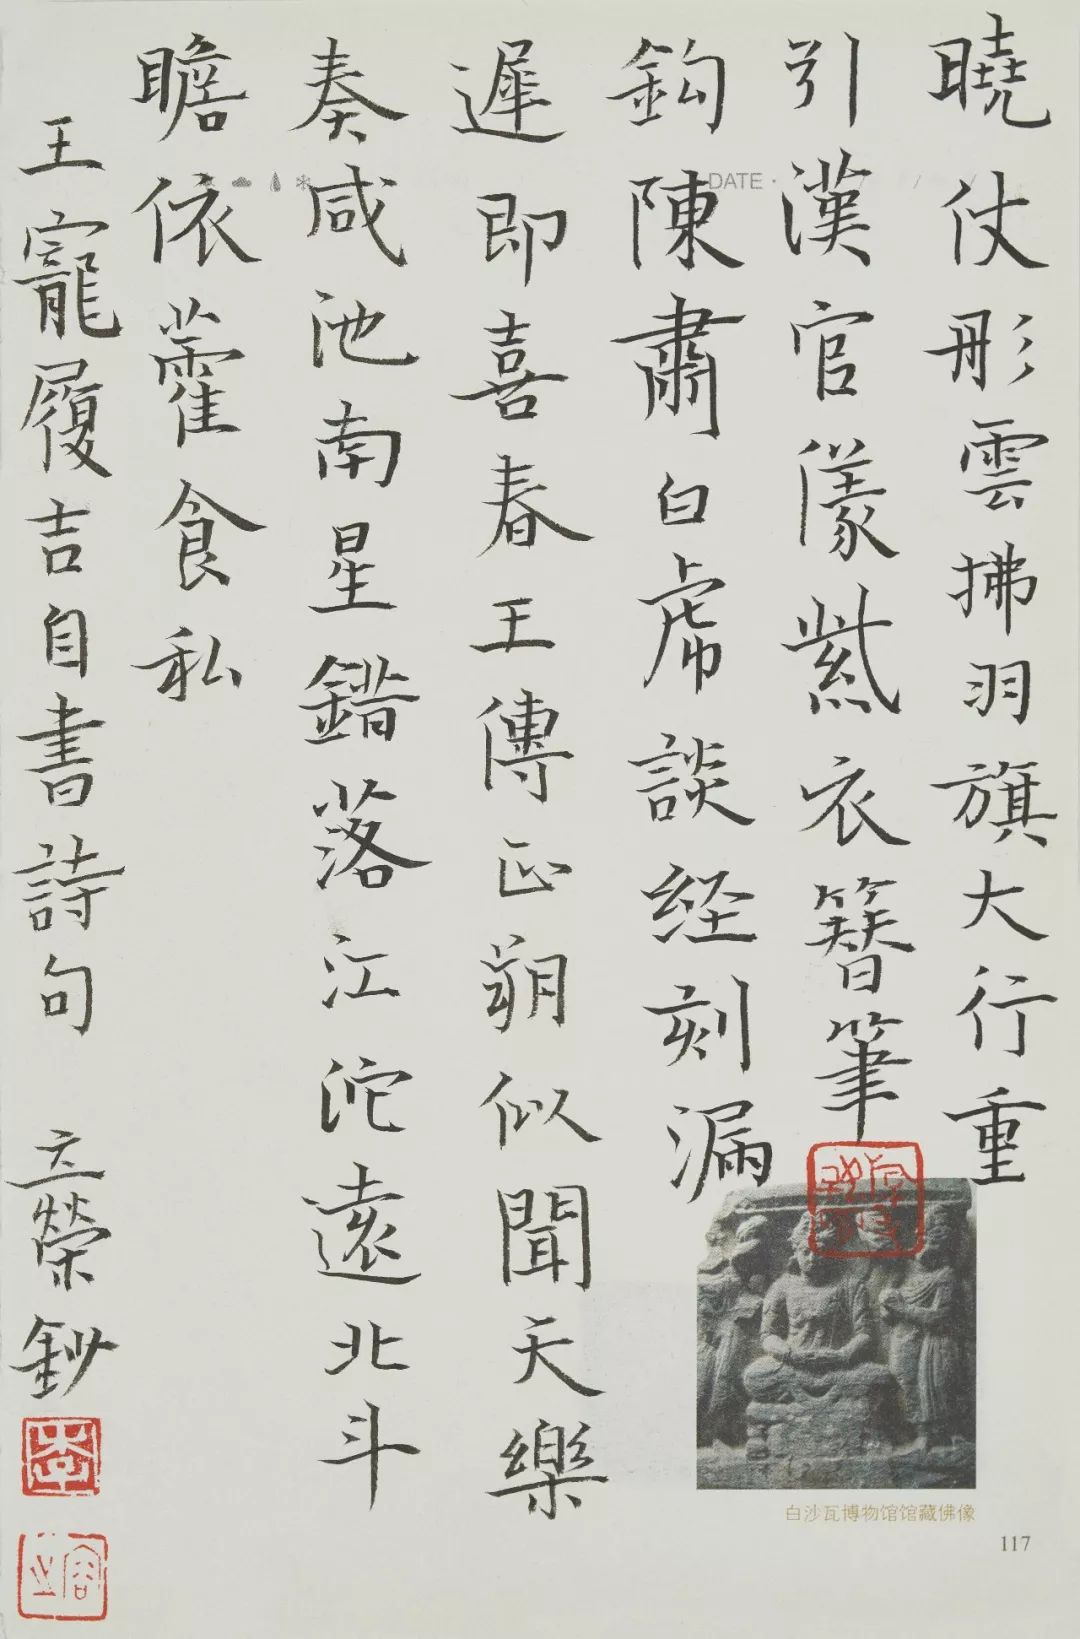 曉仗彤雲拂羽旗大行重
引漢官儀紫衣簪筆
鈎陳肅白虎談经刻漏
遲即喜春王傳正朔似聞天樂
奏咸池南星錯落江沱遠北斗
瞻依藿食私
王寵履吉自書詩句 立榮鈔
DATE ·
白沙瓦博物馆馆藏佛像
117